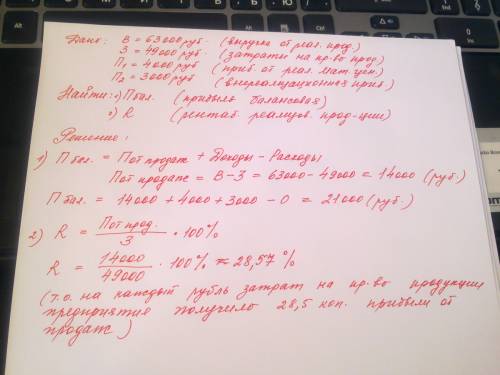 Дано: В = 63000 руб. (выручка от реал. прод.)
З = 49000 руб. (затраты на пр-во прод.)
П₁ = 4000 руб (приб. от реал. мат. цен.)
П₂ = 3000 руб (внереализационная приб)
Найти: 1) П бал. (прибыль балансовая)
2) R (рентаб. реализов. прод-ции)
Решение:
1) П бал. = Пот продаж + Доходы - Расходы
Пот продаж = В-З = 63000 - 49000 = 14000 (руб.)
П бал. = 14000 + 4000 + 3000 - 0 = 21000 (руб.)
2) R = Пот прод. / З · 100%
R = 14000 / 49000 · 100% ≈ 28,57 %
(т.о. на каждый рубль затрат на пр-во продукции
предприятие получило 28,5 коп. прибыли от
продаж)